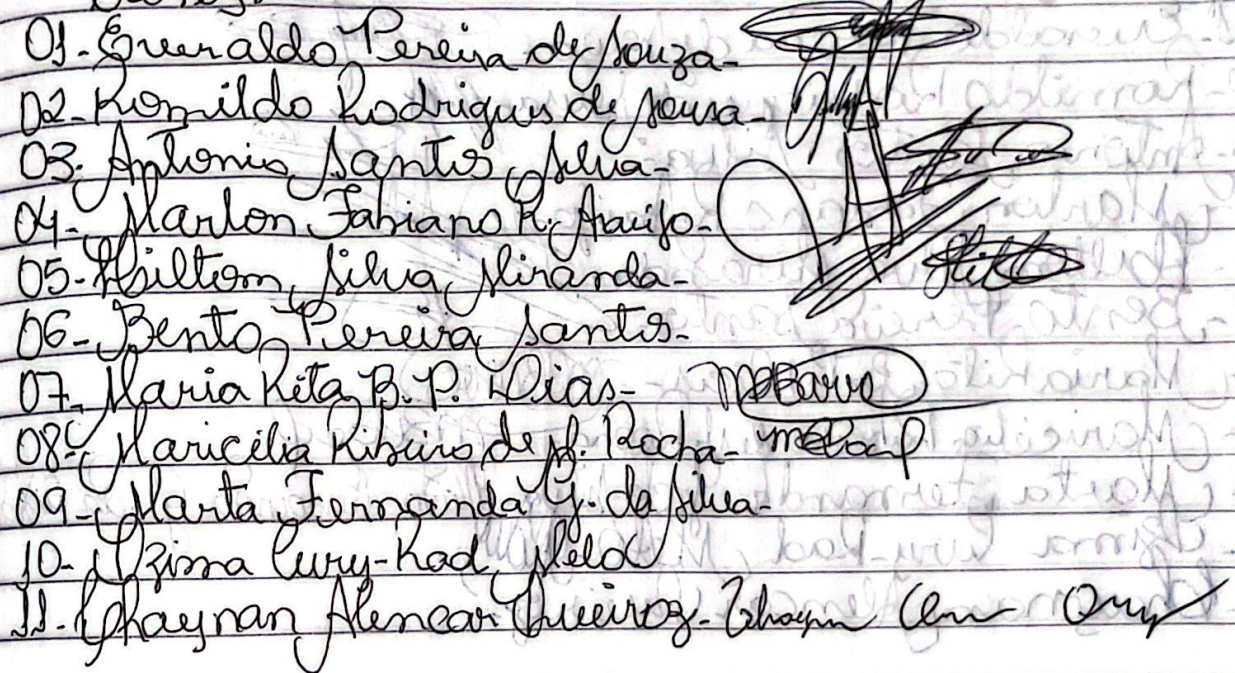 01- Erivaldo Pereira de Souza-
02- Romildo Rodrigues de Sousa-
03- Antonio Santos Silva-
04- Marlon Fabiano R. Araújo-
05- Hailtom Silva Miranda-
06- Bento Pereira Santos-
07- Maria Rita B. P. Dias-
08- Maricélia Ribeiro de M. Rocha-
09- Marta Fernanda G. da Silva-
10- Ozima Cury-Rad Melo
11- Thaynan Alencar Queiroz-